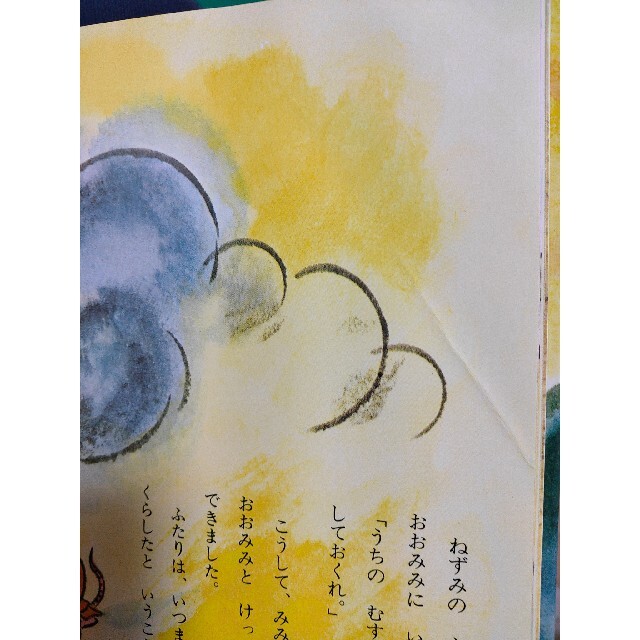 ねずみの
おおみみに い
「うちの むす
しておくれ。」
こうして、みみ
おおみみと けっ
できました。
ふたりは、いつま
くらしたと いうこ